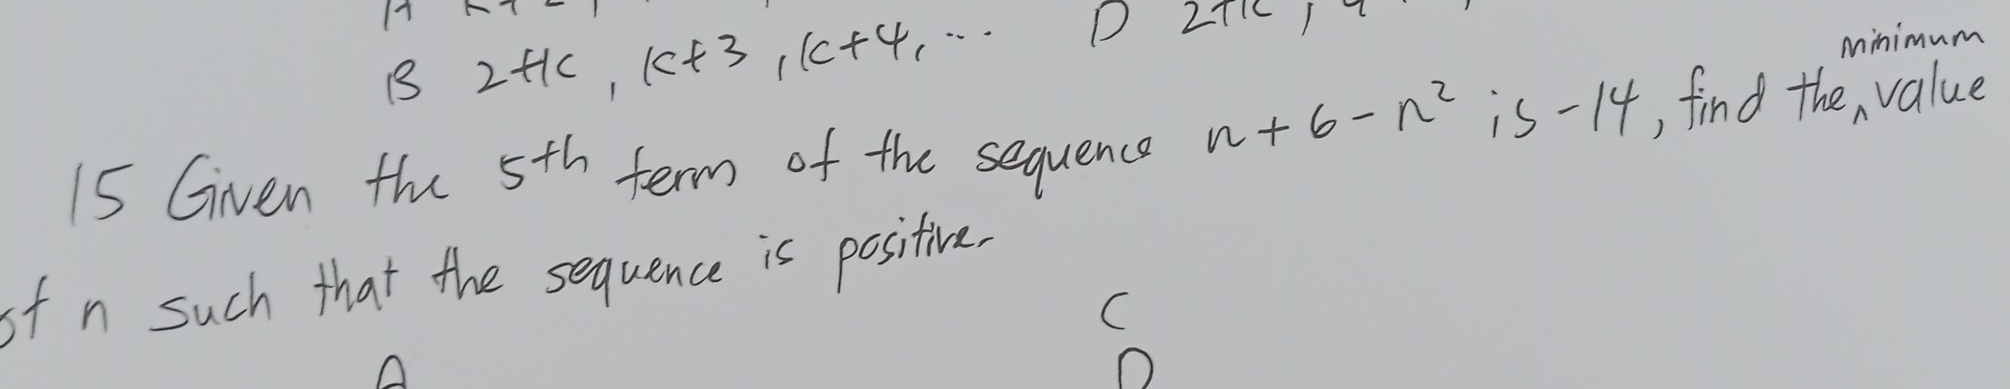 B 2+k, k+3, k+4, ... D 2+k,
minimum
15 Given the 5th term of the sequence n + 6 - n² is -14, find the ^ value
of n such that the sequence is positive.
C
A D